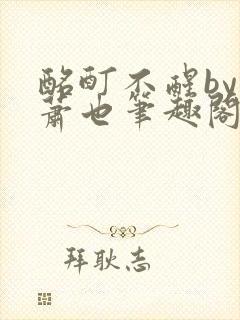 酩酊不醒by
萧也笔趣阁
拜耿志